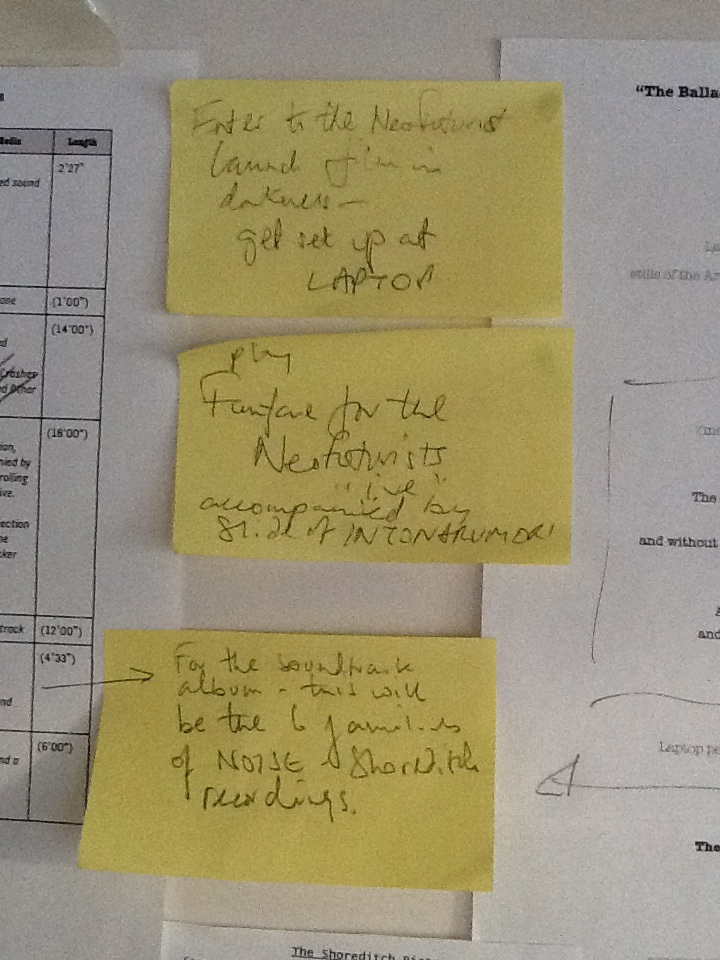 Media
Length
ed sound
2'27"
one
(1'00")
(14'00")
Crashes
ed Other
(18'00")
nied by
rolling
ive.
ection
ne
track
(12'00")
(4'33")
nd
nd a
(6'00")
Enter to the Neofuturist
launch film in
darkness—
get set up at
LAPTOP
play
Fanfare for the
Neofuturists
"live"
accompanied by
Slide of INTONARUMORI
For the soundtrack
album - this will
be the 6 families
of NOISE + Shoreditch
recordings.
"The Balla
stills of the Ar
The
and without
and
Laptop pe
The
The Shoreditch